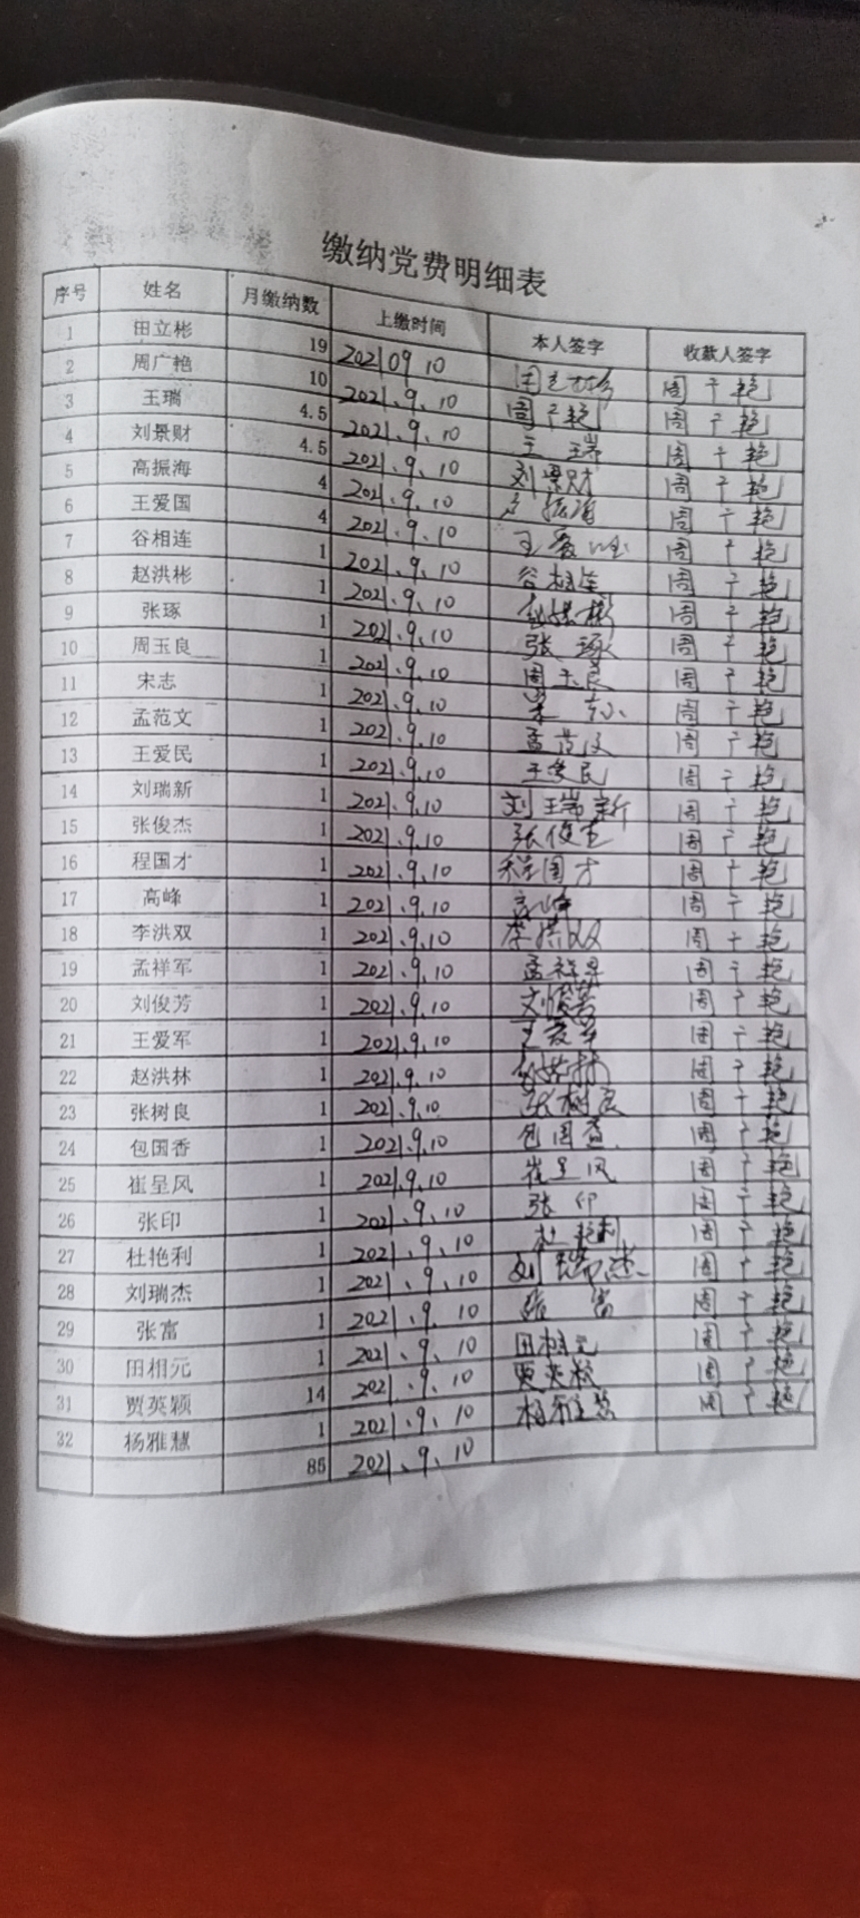 缴纳党费明细表
序号 姓名 月缴纳数 上缴时间 本人签字 收款人签字
1 田立彬 19 2021 09 10 田立彬 周广艳
2 周广艳 10 2021.9.10 周广艳 周广艳
3 王瑞 4.5 2021.9.10 王瑞 周广艳
4 刘景财 4.5 2021.9.10 刘景财 周广艳
5 高振海 4 2021.9.10 高振海 周广艳
6 王爱国 4 2021.9.10 王爱国 周广艳
7 谷相连 1 2021.9.10 谷相连 周广艳
8 赵洪彬 1 2021.9.10 赵洪彬 周广艳
9 张琢 1 2021.9.10 张琢 周广艳
10 周玉良 1 2021.9.10 周玉良 周广艳
11 宋志 1 2021.9.10 宋志 周广艳
12 孟范文 1 2021.9.10 孟范文 周广艳
13 王爱民 1 2021.9.10 王爱民 周广艳
14 刘瑞新 1 2021.9.10 刘瑞新 周广艳
15 张俊杰 1 2021.9.10 张俊杰 周广艳
16 程国才 1 2021.9.10 程国才 周广艳
17 高峰 1 2021.9.10 高峰 周广艳
18 李洪双 1 2021.9.10 李洪双 周广艳
19 孟祥军 1 2021.9.10 孟祥军 周广艳
20 刘俊芳 1 2021.9.10 刘俊芳 周广艳
21 王爱军 1 2021.9.10 王爱军 周广艳
22 赵洪林 1 2021.9.10 赵洪林 周广艳
23 张树良 1 2021.9.10 张树良 周广艳
24 包国香 1 2021.9.10 包国香 周广艳
25 崔呈风 1 2021.9.10 崔呈风 周广艳
26 张印 1 2021.9.10 张印 周广艳
27 杜艳利 1 2021.9.10 杜艳利 周广艳
28 刘瑞杰 1 2021.9.10 刘瑞杰 周广艳
29 张富 1 2021.9.10 张富 周广艳
30 田相元 1 2021.9.10 田相元 周广艳
31 贾英颖 14 2021.9.10 贾英颖 周广艳
32 杨雅慧 1 2021.9.10 杨雅慧 周广艳
85 2021.9.10